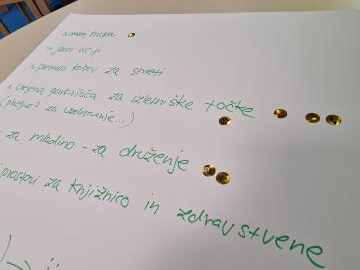 - manj hrupa
- javni WC-ji
- premalo košev za smeti
- urejena parkirišča za izletniške točke
(plačljiva? za vzdrževanje...)
za mladino - za druženje
prostori za knjižnico in zdravstvene